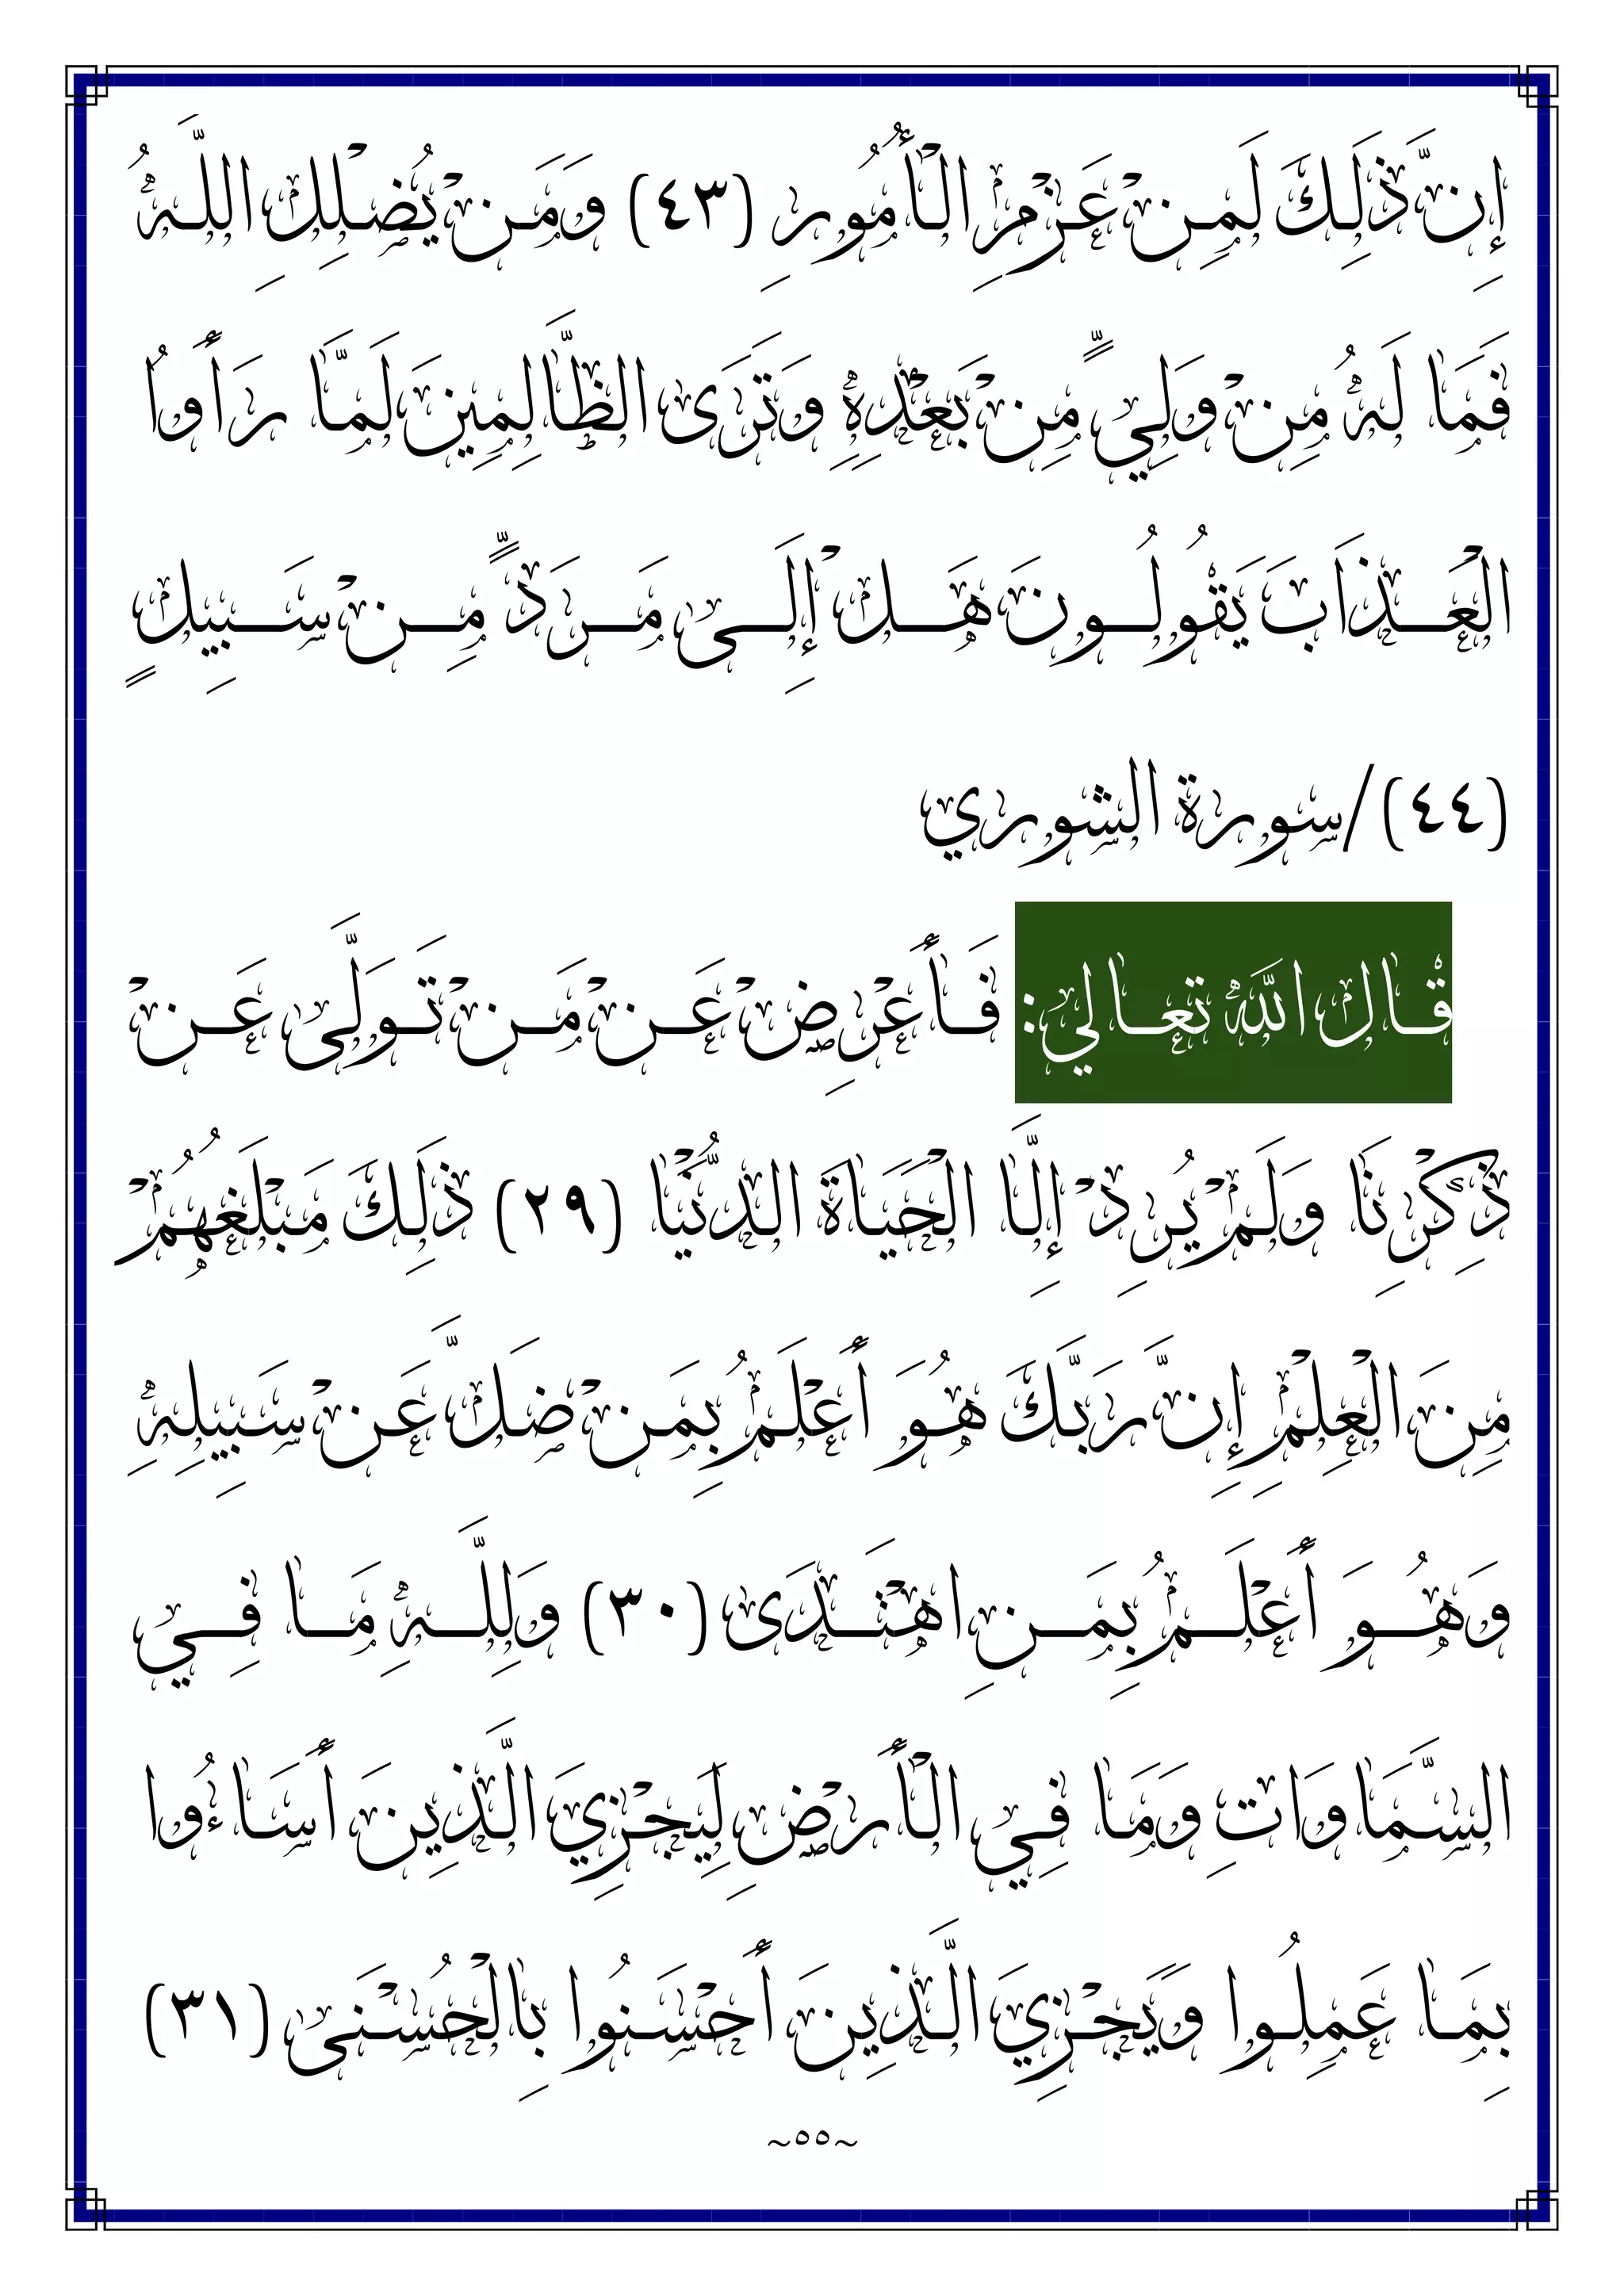 إِنَّ ذَلِكَ لَمِنْ عَزْمِ الْأُمُورِ (٤٣) وَمَنْ يُضْلِلِ اللَّهُ
فَمَا لَهُ مِنْ وَلِيٍّ مِنْ بَعْدِهِ وَتَرَى الظَّالِمِينَ لَمَّا رَأَوُا
الْعَذَابَ يَقُولُونَ هَلْ إِلَى مَرَدٍّ مِنْ سَبِيلٍ
(٤٤)/سورة الشوري
قال الله تعالي: فَأَعْرِضْ عَنْ مَنْ تَوَلَّى عَنْ
ذِكْرِنَا وَلَمْ يُرِدْ إِلَّا الْحَيَاةَ الدُّنْيَا (٢٩) ذَلِكَ مَبْلَغُهُمْ
مِنَ الْعِلْمِ إِنَّ رَبَّكَ هُوَ أَعْلَمُ بِمَنْ ضَلَّ عَنْ سَبِيلِهِ
وَهُوَ أَعْلَمُ بِمَنِ اهْتَدَى (٣٠) وَلِلَّهِ مَا فِي
السَّمَاوَاتِ وَمَا فِي الْأَرْضِ لِيَجْزِيَ الَّذِينَ أَسَاءُوا
بِمَا عَمِلُوا وَيَجْزِيَ الَّذِينَ أَحْسَنُوا بِالْحُسْنَى (٣١)
~٥٥~